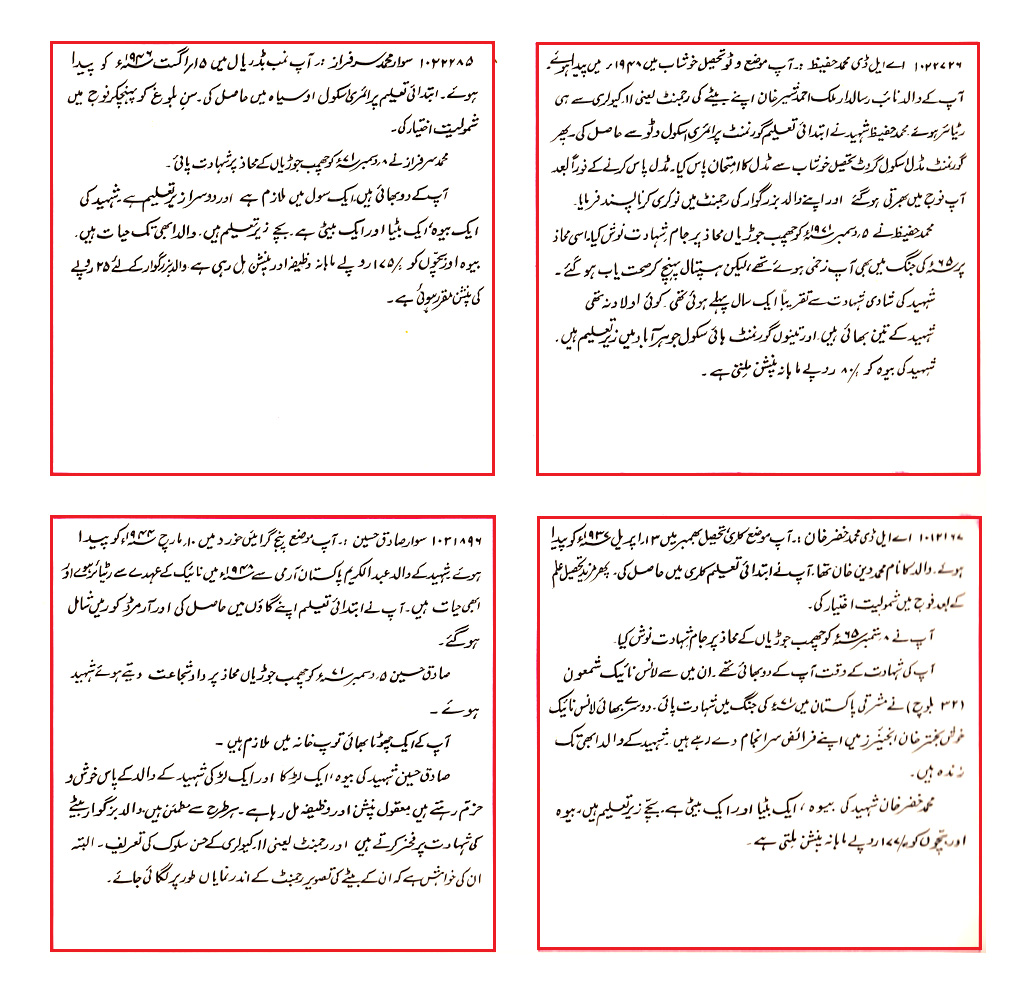 ۱۰۲۲۷۲۶ اے ایل ڈی محمد حفیظ :۔ آپ موضع وٹو تحصیل خوشاب میں ۱۹۴۸ء میں پیدا ہوئے۔
آپ کے والد نائب رسالدار ملک احمد شیر خان اپنے بیٹے کی رجمنٹ یعنی ۱۱ کیولری سے ہی
ریٹائر ہوئے۔ محمد حفیظ شہید نے ابتدائی تعلیم گورنمنٹ پرائمری سکول وٹو سے حاصل کی۔ پھر
گورنمنٹ مڈل سکول گروٹ تحصیل خوشاب سے مڈل کا امتحان پاس کیا۔ مڈل پاس کرنے کے فوراً بعد
آپ فوج میں بھرتی ہو گئے اور اپنے والد بزرگوار کی رجمنٹ میں نوکری کرنا پسند فرمایا۔
محمد حفیظ نے ۵ دسمبر ۱۹۷۱ء کو چھمب جوڑیاں محاذ پر جام شہادت نوش کیا۔ اسی محاذ
پر ۶۵ء کی جنگ میں بھی آپ زخمی ہوئے تھے، لیکن ہسپتال پہنچ کر صحت یاب ہو گئے۔
شہید کی شادی شہادت سے تقریباً ایک سال پہلے ہوئی تھی۔ کوئی اولاد نہ تھی
شہید کے تین بھائی ہیں۔ اور تینوں گورنمنٹ ہائی سکول جوہر آباد میں زیر تعلیم ہیں۔
شہید کی بیوہ کو ۸۰/ روپے ماہانہ پنشن ملتی ہے۔
۱۰۲۲۲۸۵ سوار محمد سرفراز :۔ آپ نمب بڈریال میں ۱۵ اگست ۱۹۴۶ء کو پیدا
ہوئے۔ ابتدائی تعلیم پرائمری سکول اوسیاہ میں حاصل کی۔ سن بلوغ کو پہنچکر فوج میں
شمولیت اختیار کی۔
محمد سرفراز نے ۸ دسمبر ۷۱ء کو چھمب جوڑیاں کے محاذ پر شہادت پائی۔
آپ کے دو بھائی ہیں، ایک سول میں ملازم ہے اور دوسرا زیر تعلیم ہے۔ شہید کی
ایک بیوہ، ایک بیٹا اور ایک بیٹی ہے۔ بچے زیر تعلیم ہیں۔ والد ابھی تک حیات ہیں۔
بیوہ اور بچوں کو ۱۷۵/ روپے ماہانہ وظیفہ اور پنشن مل رہی ہے۔ والد بزرگوار کے لئے ۲۵ روپے
کی پنشن مقرر ہوئی ہے۔
۱۰۱۲۱۶۷ اے ایل ڈی محمد خضر خان :۔ آپ موضع کلری تحصیل بھمبر میں ۱۳ اپریل ۱۹۳۷ء کو پیدا
ہوئے۔ والد کا نام محمد دین خان تھا۔ آپ نے ابتدائی تعلیم کلری میں حاصل کی۔ پھر مزید تحصیل علم
کے بعد فوج میں شمولیت اختیار کی۔
آپ نے ۸ ستمبر ۶۵ء کو چھمب جوڑیاں کے محاذ پر جام شہادت نوش کیا۔
آپ کی شہادت کے وقت آپ کے دو بھائی تھے۔ ان میں سے لانس نائیک شمعون
(۳۲ بلوچ) نے مشرقی پاکستان میں ۷۱ء کی جنگ میں شہادت پائی۔ دوسرے بھائی لانس نائیک
بختر خان انجینئرز میں اپنے فرائض سرانجام دے رہے ہیں۔ شہید کے والد ابھی تک
زندہ ہیں۔
محمد خضر خان شہید کی بیوہ، ایک بیٹا اور ایک بیٹی ہے۔ بچے زیر تعلیم ہیں۔ بیوہ
اور بچوں کو ۱۷۷/ روپے ماہانہ پنشن ملتی ہے۔
۱۰۳۱۸۹۶ سوار صادق حسین :۔ آپ موضع پنج گرائیں خورد میں ۱۰ مارچ ۱۹۴۴ء کو پیدا
ہوئے شہید کے والد عبدالکریم پاکستان آرمی سے ۱۹۴۸ء میں نائیک کے عہدے سے ریٹائر ہوئے اور
ابھی حیات ہیں۔ آپ نے ابتدائی تعلیم اپنے گاؤں میں حاصل کی اور آرمرڈ کور میں شامل
ہو گئے۔
صادق حسین ۵ دسمبر ۷۱ء کو چھمب جوڑیاں محاذ پر داد شجاعت دیتے ہوئے شہید
ہوئے۔
آپ کے ایک چھوٹا بھائی توپ خانہ میں ملازم ہیں۔
صادق حسین شہید کی بیوہ، ایک لڑکا اور ایک لڑکی شہید کے والد کے پاس خوش و
خرم رہتے ہیں۔ معقول پنشن اور وظیفہ مل رہا ہے۔ ہر طرح سے مطمئن ہیں، والد بزرگوار بیٹے
کی شہادت پر فخر کرتے ہیں اور رجمنٹ یعنی ۱۱ کیولری کے حسن سلوک کی تعریف۔ البتہ
ان کی خواہش ہے کہ ان کے بیٹے کی تصویر رجمنٹ کے اندر نمایاں طور پر لگائی جائے۔